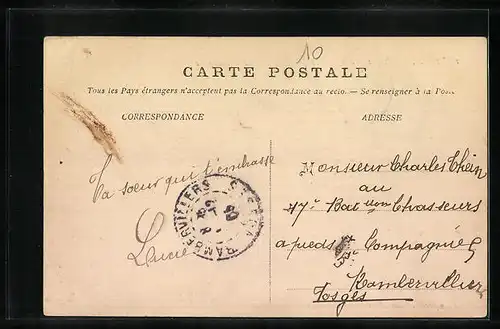 10
CARTE POSTALE
Tous les Pays étrangers n'acceptent pas la Correspondance au recto. — Se renseigner à la Poste
CORRESPONDANCE
ADRESSE
Ta soeur qui t'embrasse
Lucie
RAMBERVILLERS
Monsieur Charles
au
17e Bat on Chasseurs
a pieds Compagnie
Rambervillier
Vosges